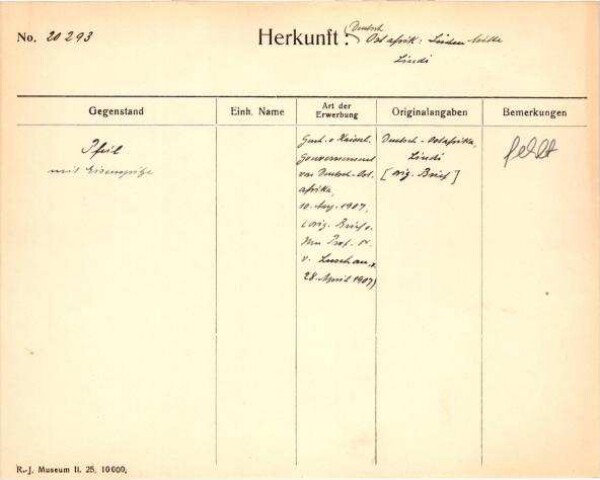 No. 20 293
Herkunft: Deutsch
Ostafrik: Süden-Küste
Lindi
Gegenstand
Einh. Name
Art der
Erwerbung
Originalangaben
Bemerkungen
Pfeil
mit Eisenspitze
Gesch. v. Kaiserl.
Gouvernement
von Deutsch-Ost-
afrika,
10. Aug. 1907.
(orig. Brief v.
Hrn Prof. Dr.
v. Luschan, v.
28. April 1907)
Deutsch-Ostafrika,
Lindi
[orig. Brief]
fehlt
R.-J. Museum II. 25. 10000.